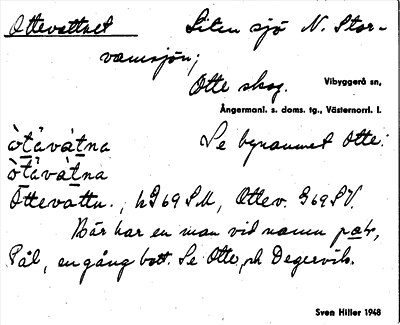 Ottevattnet Liten sjö N. Stor-
vamsjön;
Otte skog. Vibyggerå sn,
Ångermanl. s. doms. tg., Västernorrl. l.
òtåvàtna Se bynamnet Otte.
òtåvàtna
Ottevattn., h 69 SM, Ottev. G69SV.
Här har en man vid namn
Pål, en gång bott. Se Otte, och Degervik.
Sven Hiller 1948